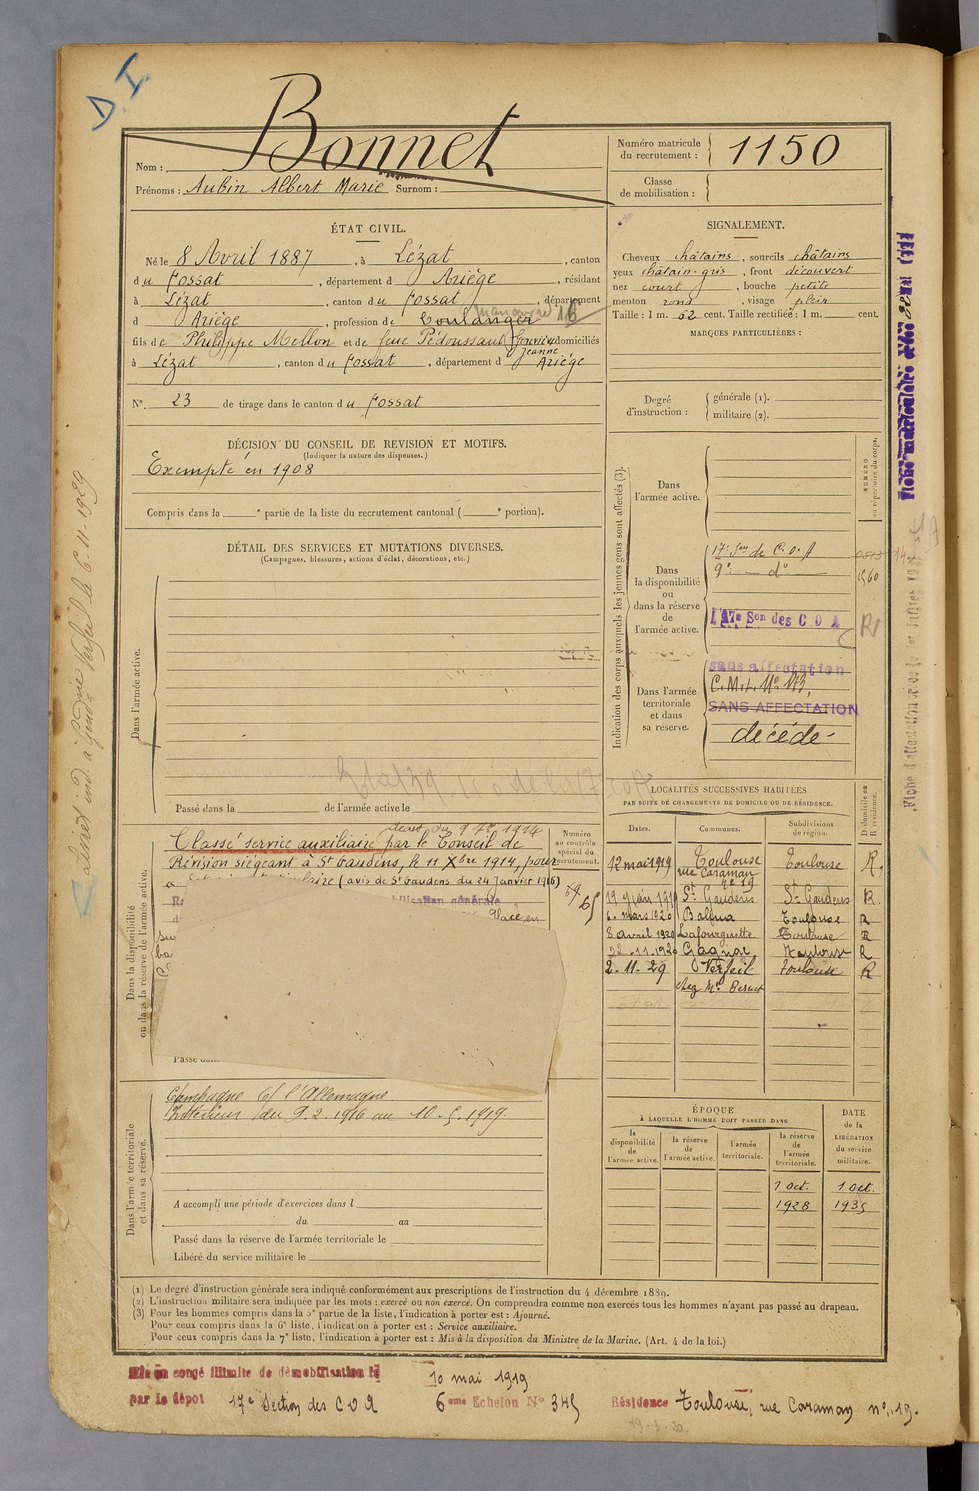 D. I
Nom : Bonnet
Prénoms : Aubin Albert Marie Surnom :
Numéro matricule du recrutement : 1150
Classe de mobilisation :
ÉTAT CIVIL.
Né le 8 Avril 1887, à Lézat, canton
du Fossat, département d Ariège, résidant
à Lézat, canton du Fossat, département
d Ariège, profession de boulanger 16
fils de Philippe Mellon et de feue Pédoussaut domiciliés
Jeanne
à Lézat, canton du Fossat, département d Ariège
N°. 23 de tirage dans le canton du Fossat
SIGNALEMENT.
Cheveux châtains, sourcils châtains
yeux châtain-gris, front découvert
nez court, bouche petite
menton rond, visage plein
Taille : 1 m. 62 cent. Taille rectifiée : 1 m. cent.
MARQUES PARTICULIÈRES :
Degré d'instruction :
générale (1).
militaire (2).
DÉCISION DU CONSEIL DE REVISION ET MOTIFS.
(Indiquer la nature des dispenses.)
Exempté en 1908
Compris dans la e partie de la liste du recrutement cantonal ( e portion).
DÉTAIL DES SERVICES ET MUTATIONS DIVERSES.
(Campagnes, blessures, actions d'éclat, décorations, etc.)
Dans l'armée active.
Passé dans la de l'armée active le
Indication des corps auxquels les jeunes gens sont affectés (3).
NUMÉRO au répertoire du corps.
Dans l'armée active.
Dans la disponibilité ou dans la réserve de l'armée active.
17e Son de C. O. A
9e — do —
1560
17e Son des C O A
RV
Dans l'armée territoriale et dans sa réserve.
sans affectation
SANS AFFECTATION
décédé
Dans la disponibilité ou dans la réserve de l'armée active.
Numéro au contrôle spécial du recrutement.
décret du 9 7bre 1914
Classé service auxiliaire par le Conseil de
Révision siégeant à St Gaudens, le 11 Xbre 1914, pour
(avis de St Gaudens du 24 Janvier 1916)
Place en
Passé dans
Dans l'armée territoriale et dans sa réserve.
Campagne c/ l'Allemagne
Intérieur du 9.2.1916 au 10.5.1919.
A accompli une période d'exercices dans l
du au
Passé dans la réserve de l'armée territoriale le
Libéré du service militaire le
LOCALITÉS SUCCESSIVES HABITÉES
PAR SUITE DE CHANGEMENTS DE DOMICILE OU DE RÉSIDENCE.
Dates. Communes. Subdivisions de région. D domicile ou R résidence.
12 mai 1919 Toulouse Toulouse R.
rue Caraman no 19
19 juin 1919 St Gaudens St Gaudens R.
6. mars 1920 Balma Toulouse R
8 avril 1920 Lafourguette Toulouse R
22-11-1920 Gagnac Toulouse R
2-11-29 Verfeil Toulouse R
chez Mr
ÉPOQUE
À LAQUELLE L'HOMME DOIT PASSER DANS
la disponibilité de l'armée active.
la réserve de l'armée active.
l'armée territoriale.
la réserve de l'armée territoriale.
DATE de la LIBÉRATION du service militaire.
1 Oct. 1 Oct.
1928 1935
(1) Le degré d'instruction générale sera indiqué conformément aux prescriptions de l'instruction du 4 décembre 1889.
(2) L'instruction militaire sera indiquée par les mots : exercé ou non exercé. On comprendra comme non exercés tous les hommes n'ayant pas passé au drapeau.
(3) Pour les hommes compris dans la 5e partie de la liste, l'indication à porter est : Ajourné.
Pour ceux compris dans la 6e liste, l'indication à porter est : Service auxiliaire.
Pour ceux compris dans la 7e liste, l'indication à porter est : Mis à la disposition du Ministre de la Marine. (Art. 4 de la loi.)
Mis en congé illimité de démobilisation le 10 mai 1919
par le dépôt 17e Section des C O A 6eme Echelon No 345 Résidence Toulouse, rue Caraman no 19.
19-3-20